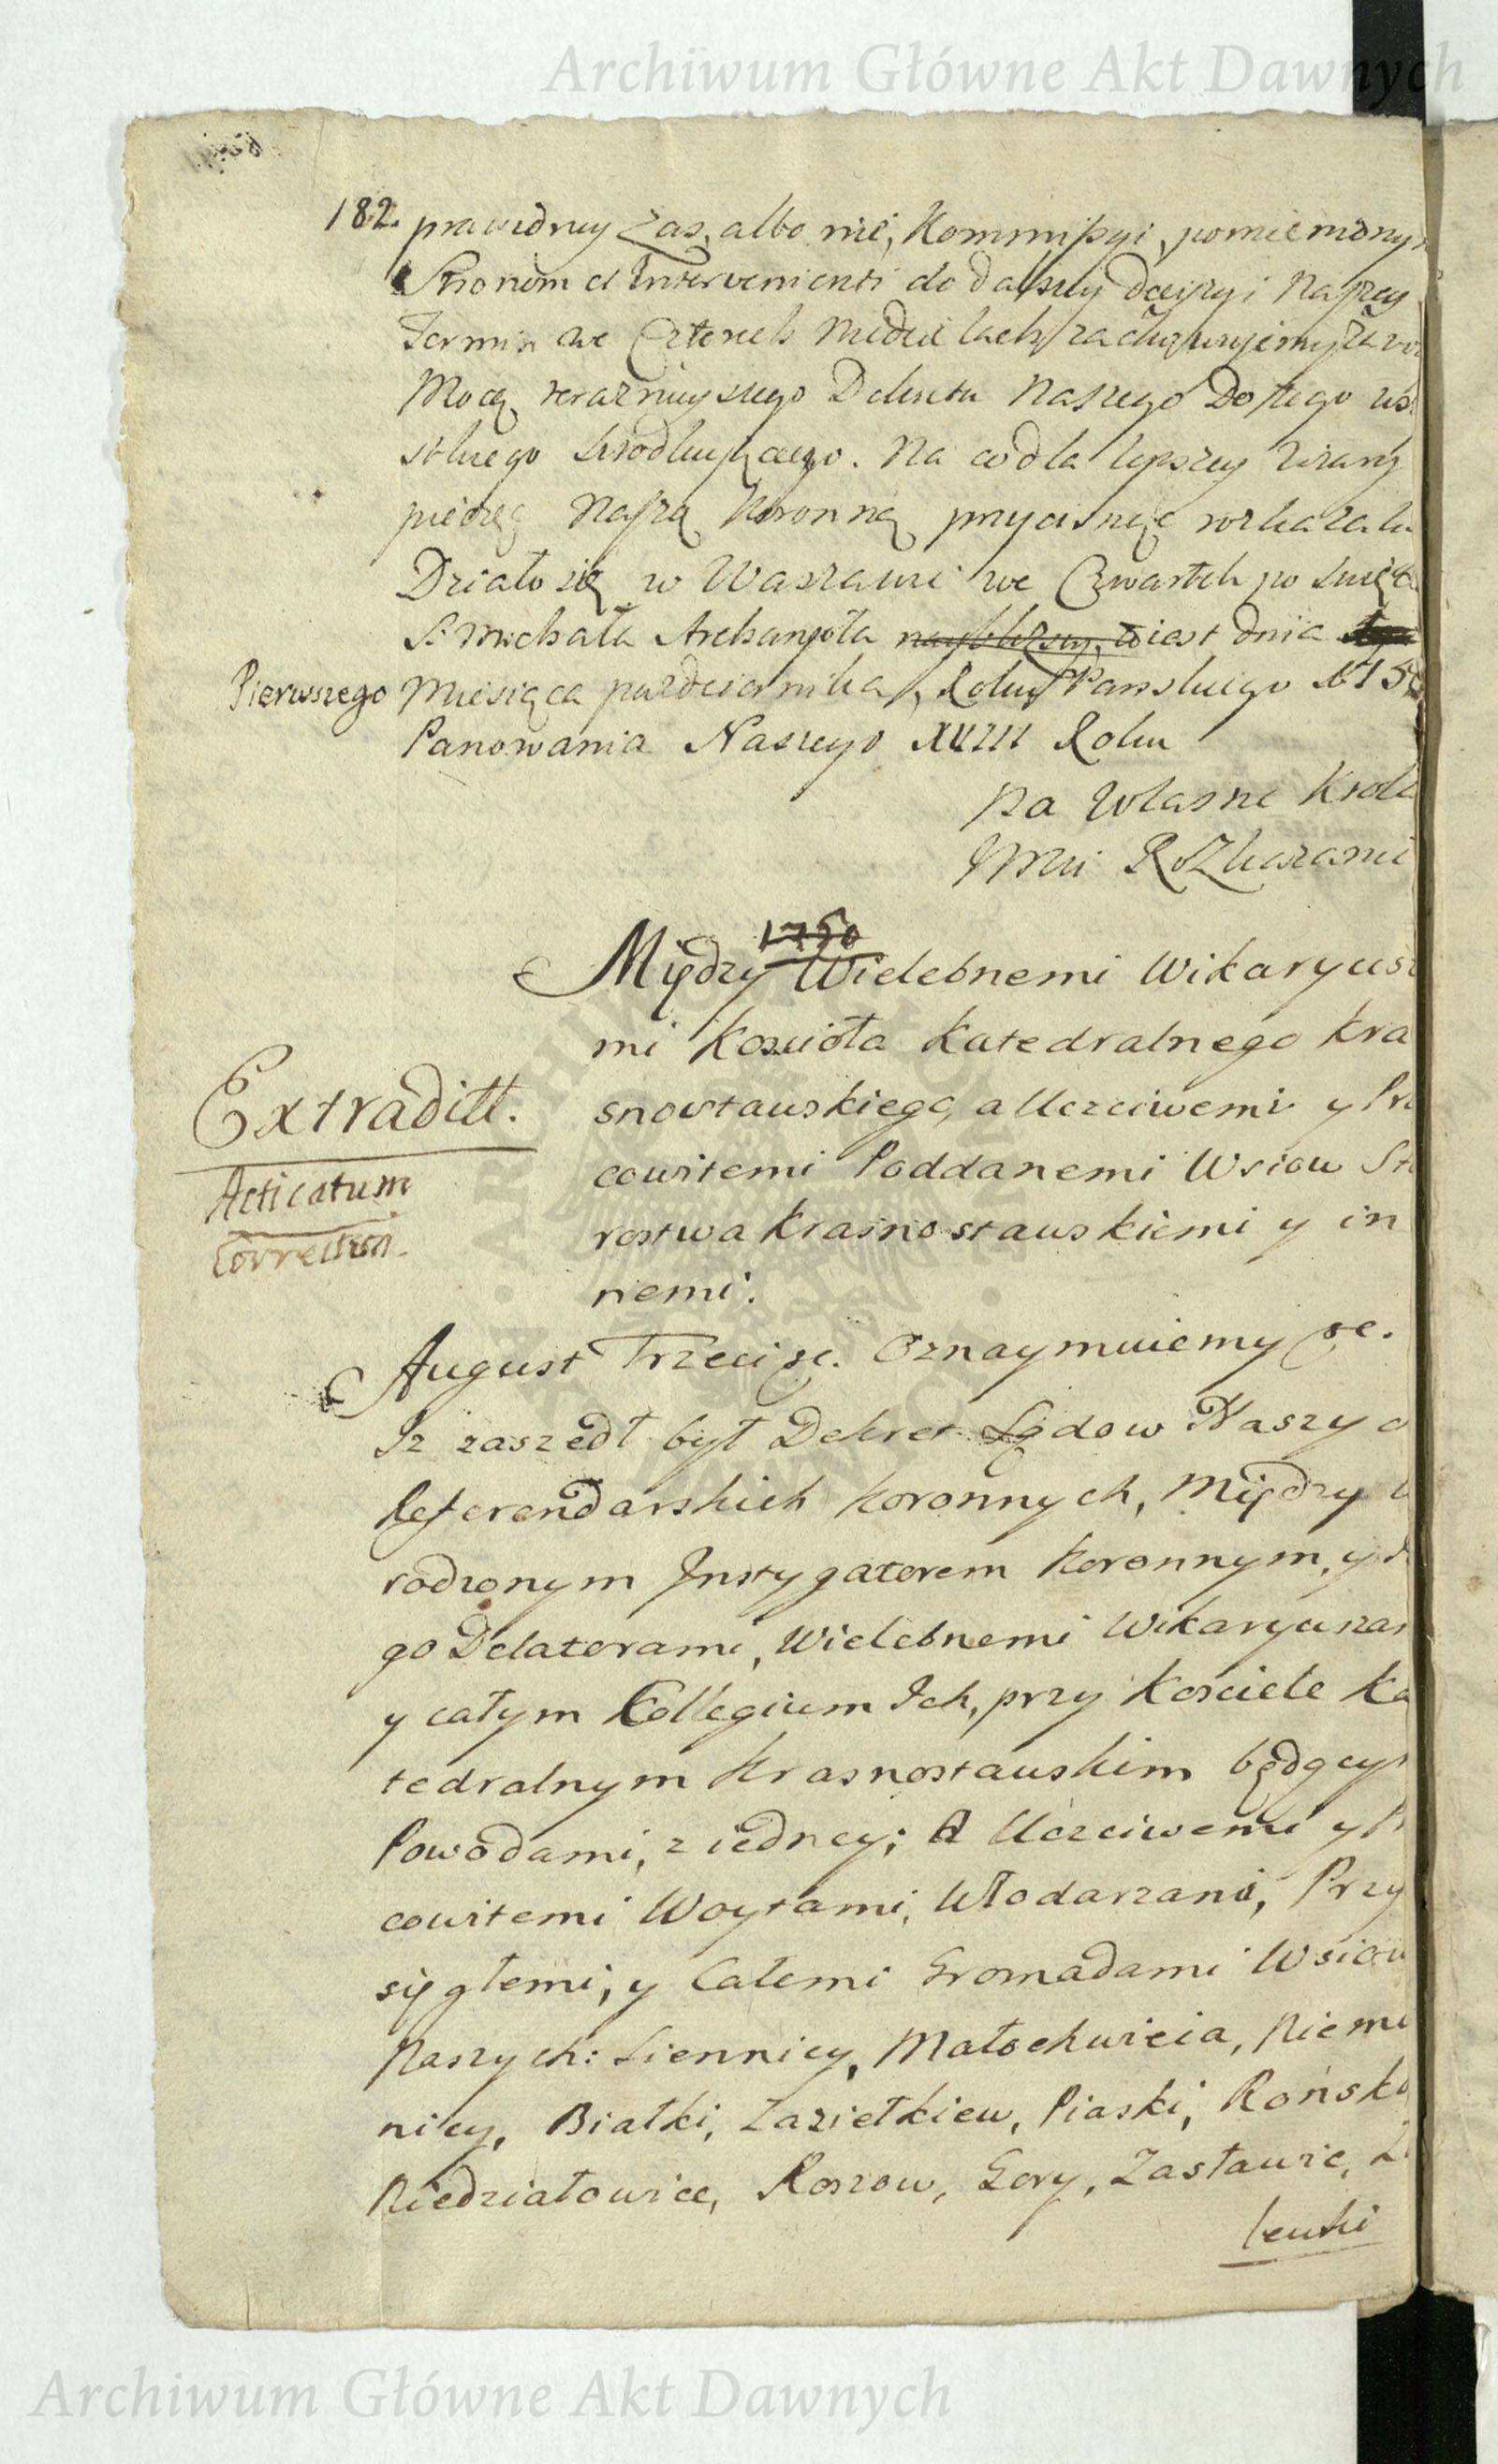 Archiwum Główne Akt Dawnych
182. prawidney zas, albo nie, Kommissyi, pomienionym
Stronom et Intervenienti do dalszey Decyzyi Naszey
Termin we Czterech Niedzielach zachowujemy
Mocą teraznieyszego Dekretu Naszego Do tego
. Na co dla lepszey Wiary
pieczęć Naszą Koronną przycisnąć rozkazali
Działo się w Warszawie we Czwartek po Swięcie
S. Michała Archanioła nayblizszy, to iest dnia
Pierwszego Miesiąca pazdziernika, Roku Panskiego
Panowania Naszego XVIII Roku
Na Własne Krola
Jmci Rozkazanie
1750
Między Wielebnemi Wikaryusza
mi Koscioła Katedralnego Kra
snostawskiego, a Uczciwemi y Pra
cowitemi Poddanemi Wsiow Sta
rostwa Krasnostawskiemi y in
nemi.
Extradit.
Acticatum
Correctum.
August Trzeci &c. Oznaymuiemy &c.
Iz zaszedł był Dekret Sądow Naszych
Referendarskich Koronnych, Między U
rodzonym Instygatorem Koronnym, y Je
go Delatorami, Wielebnemi Wikaryuszami
y całym Collegium Ich, przy Kosciele Ka
tedralnym Krasnostawskim będącym
Powodami, z iedney; A Uczciwemi y Pra
cowitemi Woytami, Włodarzami, Przy
sięgłemi, y Całemi Gromadami Wsiow
Naszych: Siennicy, Małochwieia, Niemie
nicy, Białki, Zaziełkiew, Piaski, Rońsko
Niedziałowice, Roszow, Gory, Zastawie,
lewski
Archiwum Główne Akt Dawnych